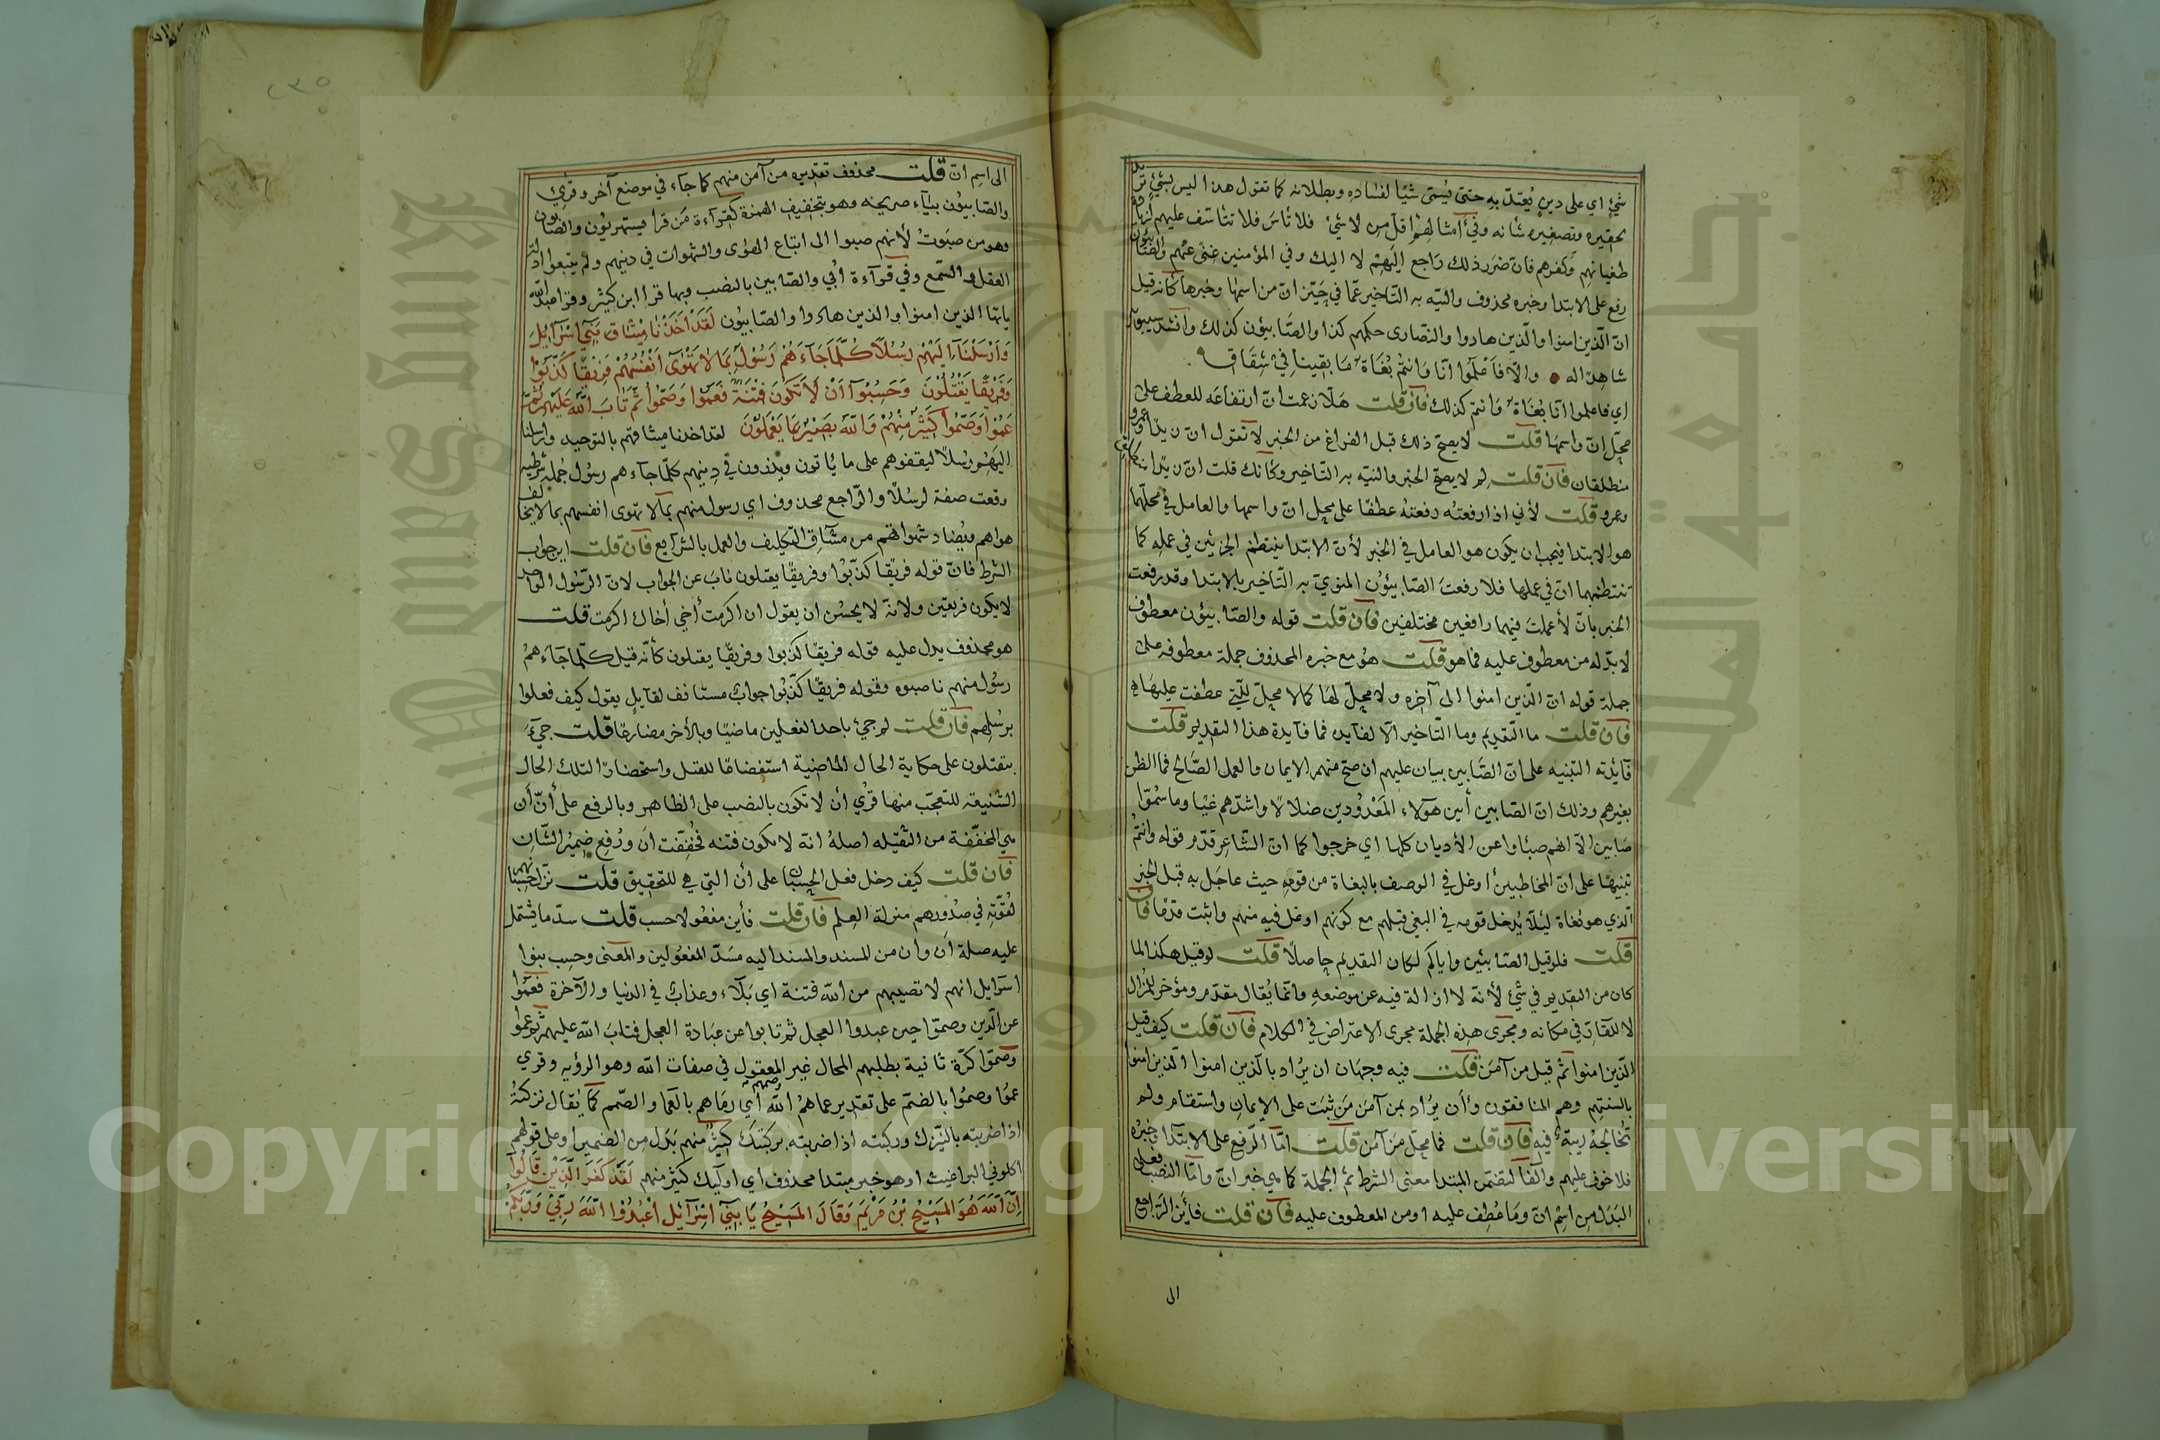 شئ اي على دين يُعتدّ به حتى يُسمّى شيًا لفساده وبطلانه كما تقول هذا ليس بشئ تريد
تحقيره وتصغير شانه وفي أمثالهم اقل من لا شئ فلا تأس فلا تتاسّف عليهم لزيادة
طغيانهم وكفرهم فان ضرر ذلك راجع اليهم لا اليك وفي المؤمنين غنى عنهم والصّابئون
رفع على الابتدا وخبره محذوف والنيّه به التاخير عمّا في حيّز انّ من اسمها وخبرها كانه قيل
انّ الّذين امنوا والّذين هادوا والنصارى حكمهم كذا والصّابيؤن كذلك وانشد سيبويه
شاهدًا له والّا فاعلموا انّا وانتم بُغاة ما بقينا في شقاق
اي فاعلموا انّا بُغاة وانتم كذلك فان قلت هلّا زعمت انّ ارتفاعه للعطف على
محلّ انّ واسمها قلت لا يصحّ ذلك قبل الفراغ من الخبر لا تقول انّ زيدًا وعمرو
منطلقان فان قلت لِم لا يصحّ الخبر والنيّه به التّاخير وكانك قلت انّ زيدًا منطلق
وعمرو قلت لأني اذا رفعتُه رفعتُه عطفًا على محل انّ واسمها والعامل في محلّهما
هو الابتدا فيجب ان يكون هو العامل في الخبر لأنّ الابتدا ينتظم الجزئين في عمله كما
تنتظمهما انّ في عملها فلو رفعتَ الصّابيؤن المنويّ به التّاخير بالابتدا وقد رفعت
الخبر بانّ لأعملت فيهما رافعين مختلفين فان قلت قوله والصّابيؤن معطوف
لا بدّ له من معطوف عليه فما هو قلت هو مع خبره المحذوف جملة معطوفه على
جملة قوله انّ الّذين امنوا الى آخره ولا محلّ لها كما لا محلّ للّتي عطفت عليها
فان قلت ما التقديم وما التّاخير الّا لفايده فما فآيدة هذا التقديم قلت
فآيدته التنبيه على انّ الصّابين بيان عليهم ان صحّ منهم الايمان والعمل الصّالح فما الظن
بغيرهم وذلك انّ الصّابين أبين هؤلاء المعدُودين ضلالًا واشدّهم غيًا وما سُمّوا
صابين الّا لانهم صبئوا عن الأديان كلها اي خرجوا كما انّ الشّاعر قدّم قوله وانتم
تنبيهًا على انّ المخاطبين أوغل في الوصف بالبغاة من قومه حيث عاجل به قبل الخبر
الّذي هو بُغاة ليلّا يُدخل قومه في البغي قبلهم مع كونهم اوغل فيه منهم واثبت قدمًا فان
قلت فلو قيل والصّابئين واياكم لكان التقديم حاصلًا قلت لو قيل هكذا لما
كان من التقديم في شئ لأنّه لا ازالة فيه عن موضعه وانّما يُقال مقدّم ومؤخّر للمُزال
لا للقارّ في مكانه ومجرى هذه الجملة مجرى الاعتراض في الكلام فان قلت كيف قيل
الّذين امنوا ثمّ قيل من آمن قلت فيه وجهان ان يُراد بالّذين امنوا الّذين امنوا
بالسنتهم وهم المنافقون وأن يُراد بمن آمن مَن ثبت على الإيمان واستقام ولم
تُخالجهُ ريبة فيه فان قلت فما محلّ مَن آمن قلت امّا الرّفع على الابتدآ وخبره
فلا خوف عليهم والفا لتضمّن المبتدا معنى الشرط ثم الجملة كما هي خبر انّ وامّا النصب فعلى
البدَل من اسم انّ وما عُطف عليه او من المعطوف عليه فان قلت فأين الرّاجع
الى
الى اسم انّ قلت محذوف تقديره من آمن منهم كما جآء في موضع آخر وقرئ
والصّابيؤن بيآء صريحه وهو بتخفيف الهمزة كقرآءة مَن قرأ يستهزئون والصّابون
وهو من صبَوتُ لأنهم صبوا الى اتباع الهوى والشهوات في دينهم ولم يتبعوا ادلّة
العقل والسّمع وفي قرآءة أُبي والصّابين بالنصب وبها قرا ابن كثير وقرا عبد اللّه
يايّها الذين امنوا والذين هادوا والصّابيُون لَقَدْ اَخَذْنَا مِيْثَاقَ بَنِيْ اسْرَآئِيْلَ
وَاَرْسَلْنَآ اِلَيْهِمْ رُسُلًا كُلَّمَا جَآءَهُمْ رَسُوْلٌ بِمَا لَا تَهْوٰى اَنْفُسُهُمْ فَرِيْقًا كَذَّبُوْا
وَفَرِيْقًا يَقْتُلُوْنَ وَحَسِبُوْآ اَنْ لَا تَكُوْنَ فِتْنَةٌ فَعَمُوْا وَصَمُّوْا ثُمَّ تَابَ اللّٰهُ عَلَيْهِمْ ثُمَّ
عَمُوْا وَصَمُّوْا كَثِيْرٌ مِنْهُمْ وَاللّٰهُ بَصِيْرٌ بِمَا يَعْمَلُوْنَ لقد اخذنا ميثاقهم بالتوحيد وارسلنا
اليهم رُسلًا ليقفوهم على ما يأتون ويذرون في دينهم كلّما جآءهم رسُول جُمله شرطيه
وقعت صفة لرسُلًا والرّاجع محذوف اي رسول منهم بما لا تهوى انفسهم بما لا يخالف
هواهم ويُضاد شهواتهم من مشآق التكليف والعمل بالشرآيع فان قلت اين جواب
الشرط فانّ قوله فريقًا كذّبُوا وفريقًا يقتلون نابَ عن الجواب لانّ الرّسُول الواحد
لا يكون فريقين ولانّه لا يحسُن ان يقول ان اكرمت أخي أخاك اكرمت قلت
هو محذوف يدل عليه قوله فريقًا كذّبوا وفريقًا يقتلون كأنّه قيل كلّما جآءهمْ
رسُول منهم ناصبوه وقوله فريقًا كذّبُوا جوابٌ مستانف لقايلٍ يقول كيف فعلوا
برسُلهم فان قلت لم جئ باحد الفعلين ماضيًا وبالأخر مضارعًا قلت جئ
بيقتلون على حكاية الحال الماضية استفضاعًا للقتل واستحضارًا لتلك الحال
الشّنيعة للتعجّب منها قرئ أن لا تكون بالنصب على الظاهر وبالرفع على أنّ أن
هي المخفّفة من الثّقيله اصلهُ انه لا يكون فتنه فخُفّفت ان وحُذف ضمِير الشّان
فان قلت كيف دخل فعل الحسبان على أن التي هي للتحقيق قلت نزّل حسبانهم
لقوّته في صدُورهم منزلة العِلم فان قلت فأين مفعولا حسب قلت سدّ ما يشتمل
عليه صلة أن وانّ من المسند والمسند اليه مسَدّ المفعولين والمعنى وحسِب بنوا
اسرآيل انهم لا تصيبهم من اللّه فتنة اي بلآء وعذاب في الدنيا والآخرة فعَمُوا
عن الدّين وصمّوا حين عبدوا العجل ثم تابوا عن عبادة العجل فتابَ اللّه عليهم ثم عموا
وصمّوا كرّة ثانية بطلبهم المحال غير المعقول في صفات اللّه وهو الرؤيه وقرئ
عمُوا وصمُوا بالضمّ على تقدير عماهمُ اللّه وصمّهم اي رماهم بالعَما والصّمم كما يُقال نزكتهُ
اذا ضربته بالنيزك وركبته اذا ضربته بركبتك كثيرٌ منهم بَدَل من الضمير او على قولهم
اكلوني البراغيث او هو خبر مبتدا محذوف اي اوليك كثير منهم لَقَدْ كَفَرَ الَّذِيْنَ قَالُوْآ
اِنَّ اللّٰهَ هُوَ المَسِيْحُ بْنُ مَرْيَمَ وَقَالَ المَسِيْحُ يَا بَنِيْ اِسْرَآئِيْلَ اعْبُدُوْا اللّٰهَ رَبِّيْ وَرَبَّكُمْ
٢٣٥
جامعة الملك سعود
Copyright © King Saud University
1957